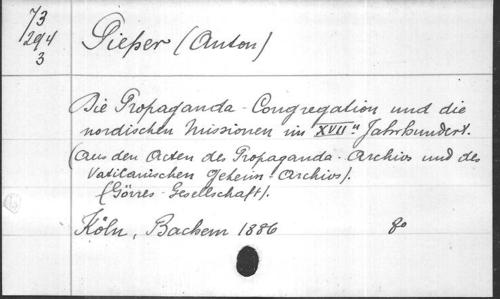 73
294
3
Pießer (Anton)
Die Propaganda-Congregation und die
nordischen Missionen im XVII.n Jahrhundert.
(Aus den Acten des Propaganda-Archivs und des
Vaticanischen Geheim-Archivs).
(Görres-Gesellschaft).
Köln, Bachem 1886 8o